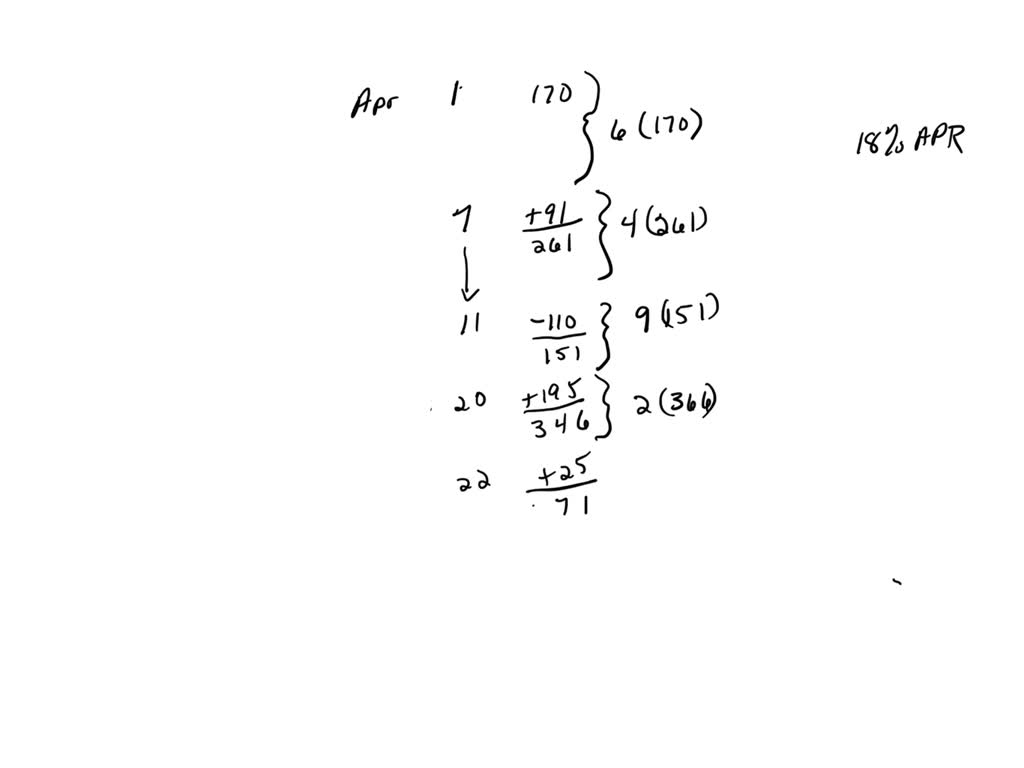 Apr 1 170 } 6 (170)
18% APR
7 +91 } 4 (261)
261
↓
11 -110 } 9 (151)
151
20 +195 } 2 (366)
346
22 +25
71